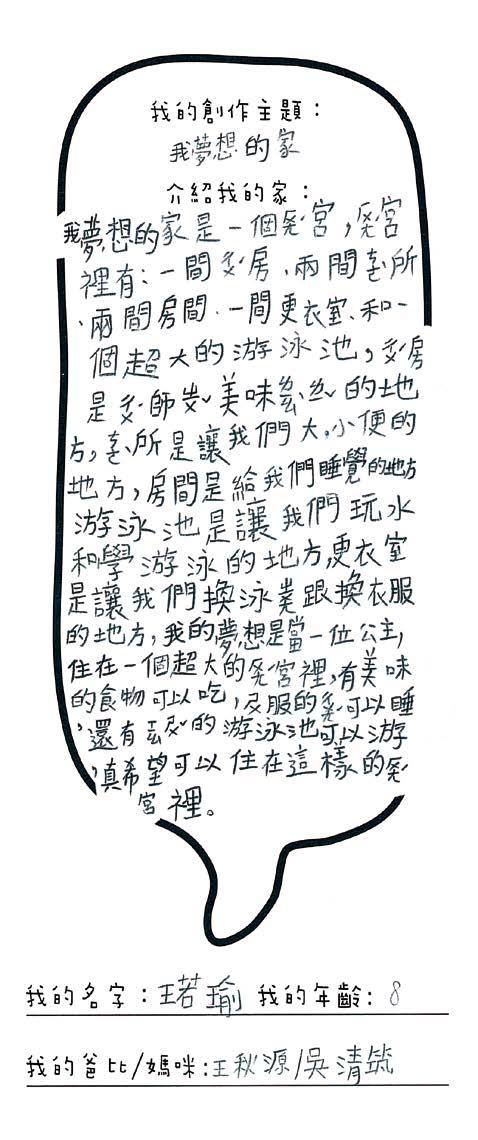 我的創作主題：
我夢想的家
介紹我的家：
我夢想的家是一個ㄍㄨㄥ宮，宮
裡有：一間ㄔㄨˊ房、兩間ㄘㄜˋ所
、兩間房間、一間更衣室、和一
個超大的游泳池，ㄔㄨˊ房
是ㄔㄨˊ師ㄓㄨˇ美味的地
方，ㄘㄜˋ所是讓我們大，小便的
地方，房間是給我們睡覺的地方
游泳池是讓我們玩水
和學游泳的地方，更衣室
是讓我們換泳ㄓㄨㄤ跟換衣服
的地方，我的夢想是當一位公主，
住在一個超大的宮裡，有美味
的食物可以吃，服的可以睡
，還有的游泳池可以游
，真希望可以住在這樣的
宮裡。
我的名字：王若瑜 我的年齡：8
我的爸比/媽咪：王秋源/吳清筑